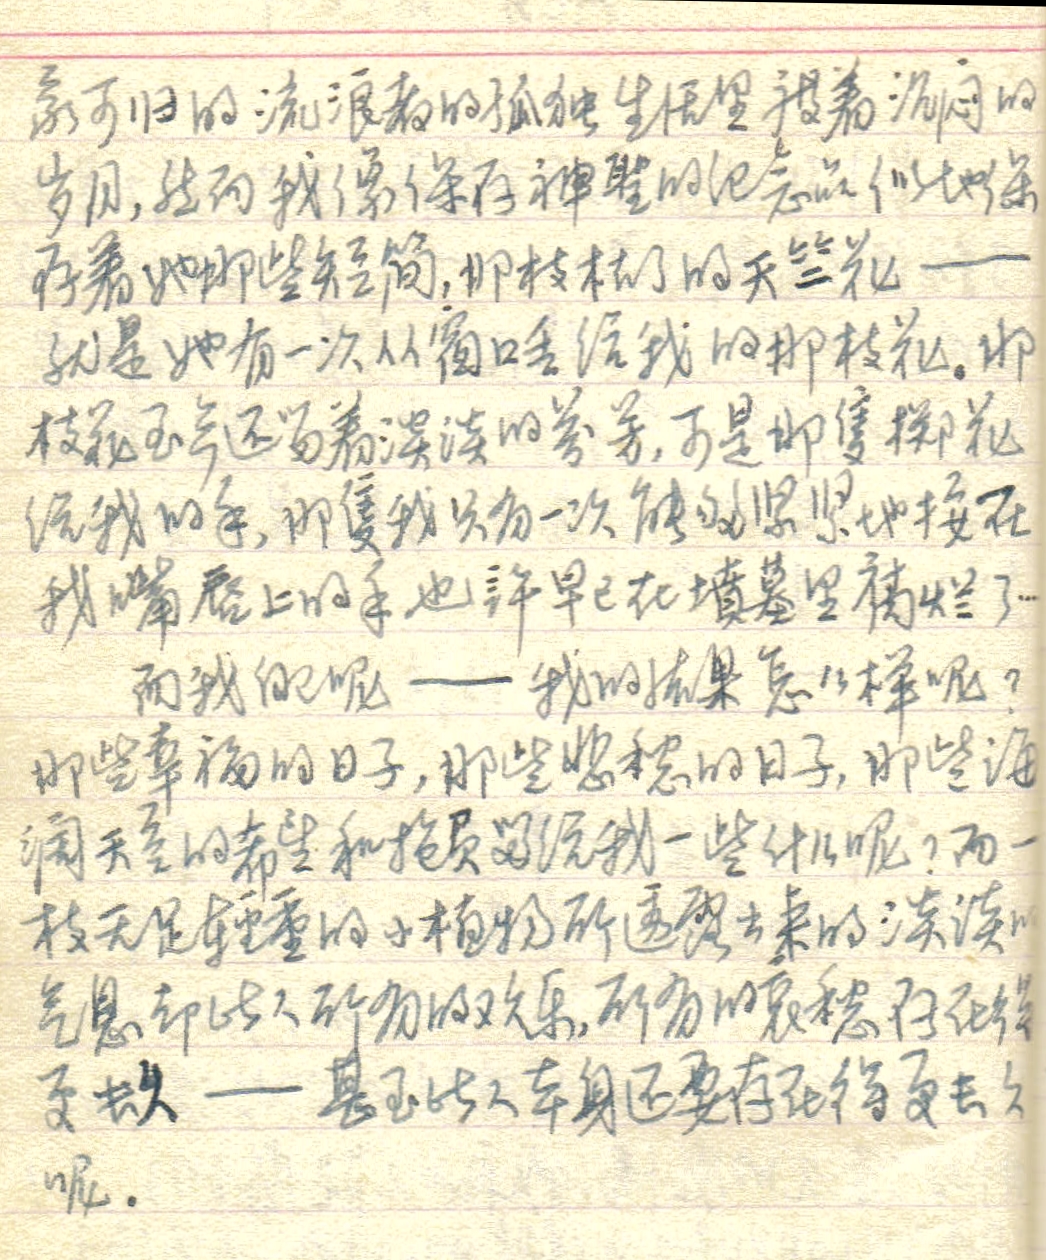 家可归的流浪者的孤独生活里捱着沉闷的
岁月，然而我像保存神聖的纪念品似地保
存着她那些短简，那枝枯了的天竺花——
就是她有一次从窗口丢给我的那枝花。那
枝花至今还留着淡淡的芬芳，可是那隻掷花
给我的手，那隻我只有一次能够紧紧地按在
我嘴唇上的手也許早已在墳墓里腐烂了…
而我自己呢——我的结果怎么样呢？
那些幸福的日子，那些悲愁的日子，那些海
阔天空的希望和抱负留给我一些什么呢？而一
枝无足輕重的小植物所透露出来的淡淡的
气息却比人所有的欢乐，所有的哀愁存在得
更长久——甚至比人本身还要存在得更长久
呢．